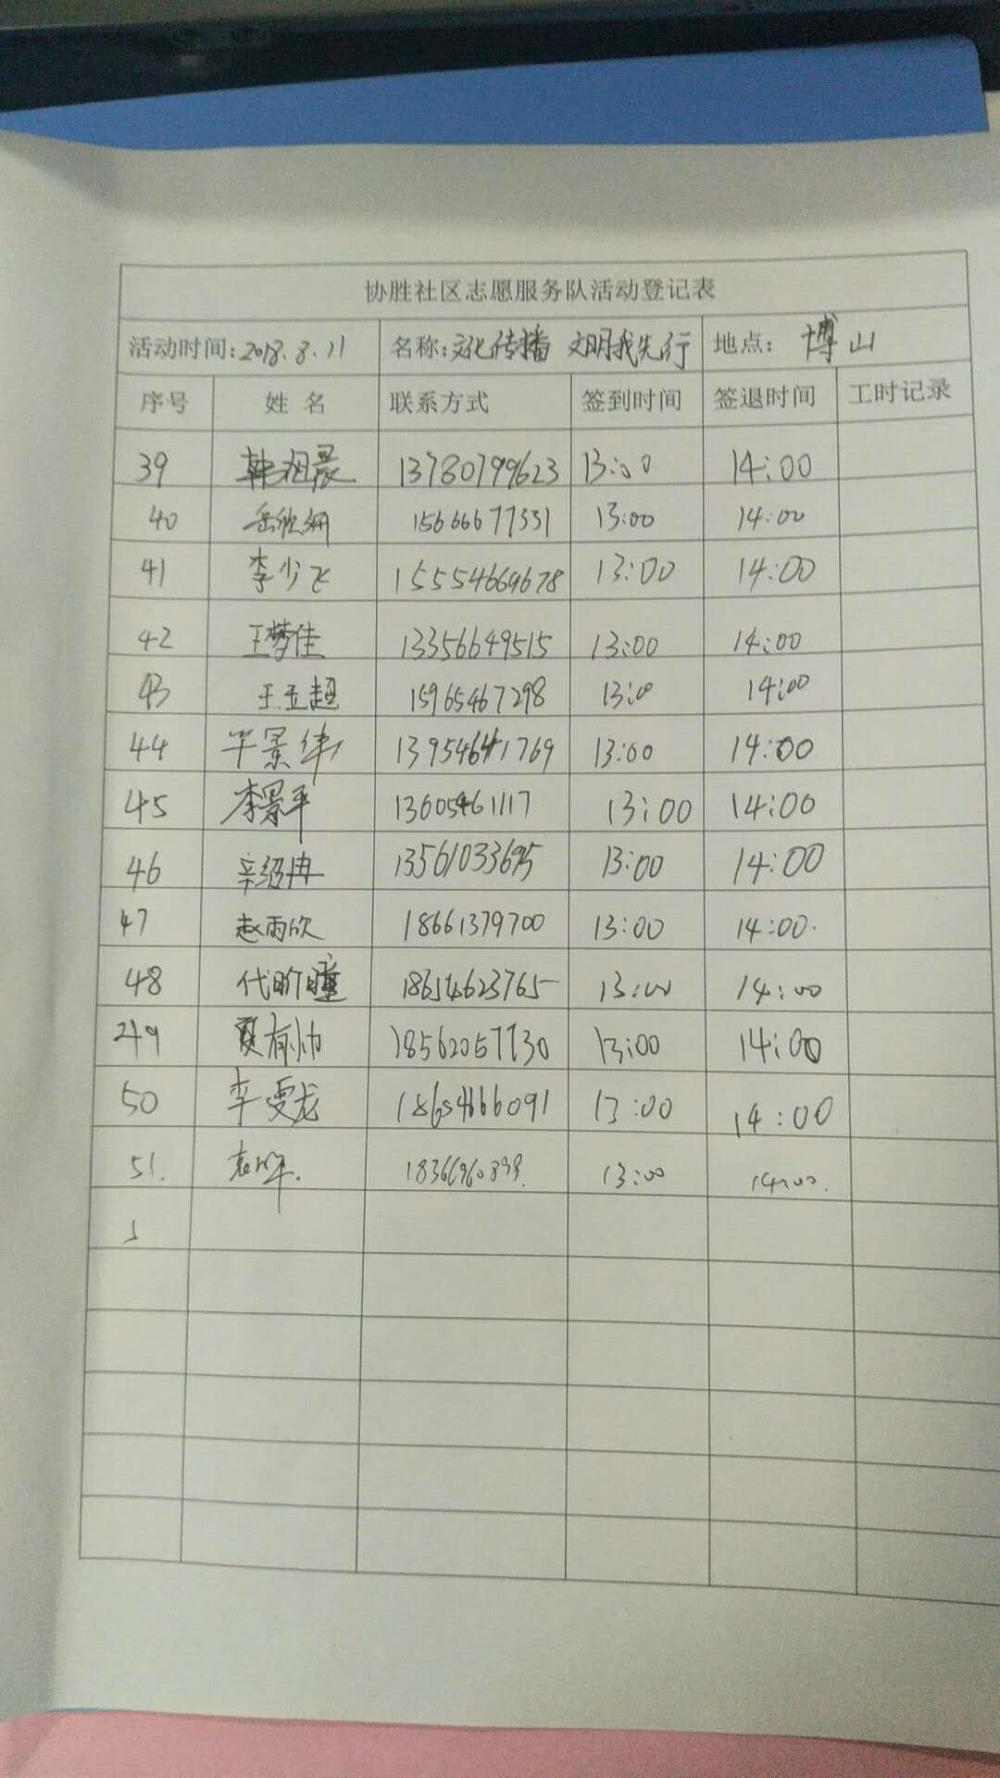 协胜社区志愿服务队活动登记表
活动时间:2018.8.11 名称:文化传播 文明我先行 地点: 博山
序号 姓名 联系方式 签到时间 签退时间 工时记录
39 韩 晨 13780799623 13:00 14:00
40 岳欣 15666677331 13:00 14:00
41 李少飞 15554669678 13:00 14:00
42 王梦佳 13356649515 13:00 14:00
43 王玉超 15965467298 13:00 14:00
44 景 13954641769 13:00 14:00
45 李景平 13605461117 13:00 14:00
46 辛绍冉 13561033695 13:00 14:00
47 赵雨欣 18661379700 13:00 14:00.
48 代 瞳 18654623765 13:00 14:00
49 有帅 18562057730 13:00 14:00
50 李雯龙 18654666091 13:00 14:00
51. 13:00 14:00.